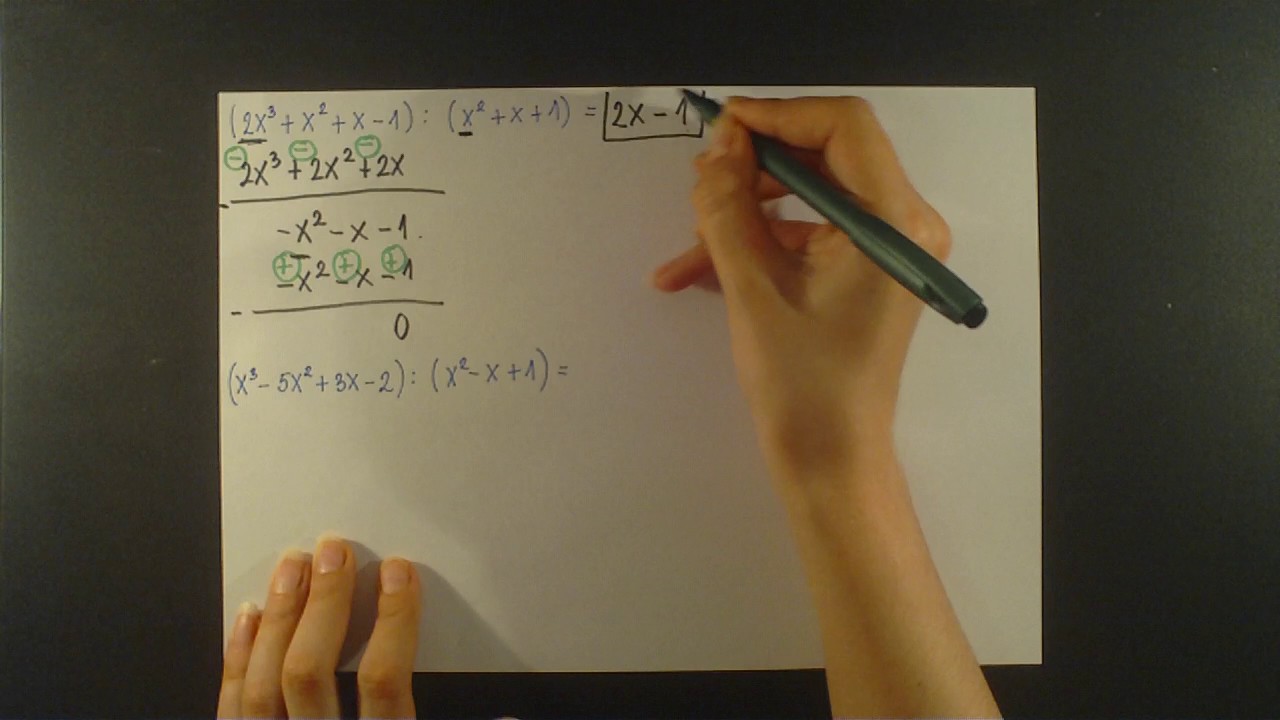 (2x³ + x² + x - 1) : (x² + x + 1) = 2x - 1
⊖ ⊖ ⊖
2x³ + 2x² + 2x
-x² - x - 1.
⊕ ⊕ ⊕
-x² - x - 1
-
0
(x³ - 5x² + 3x - 2) : (x² - x + 1) =